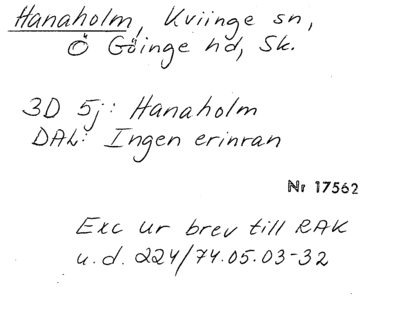 Hanaholm, Kviinge sn,
Ö Göinge hd, Sk.
3D 5j: Hanaholm
DAL: Ingen erinran
Nr 17562
Exc ur brev till RAK
u.d. 224/74.05.03-32